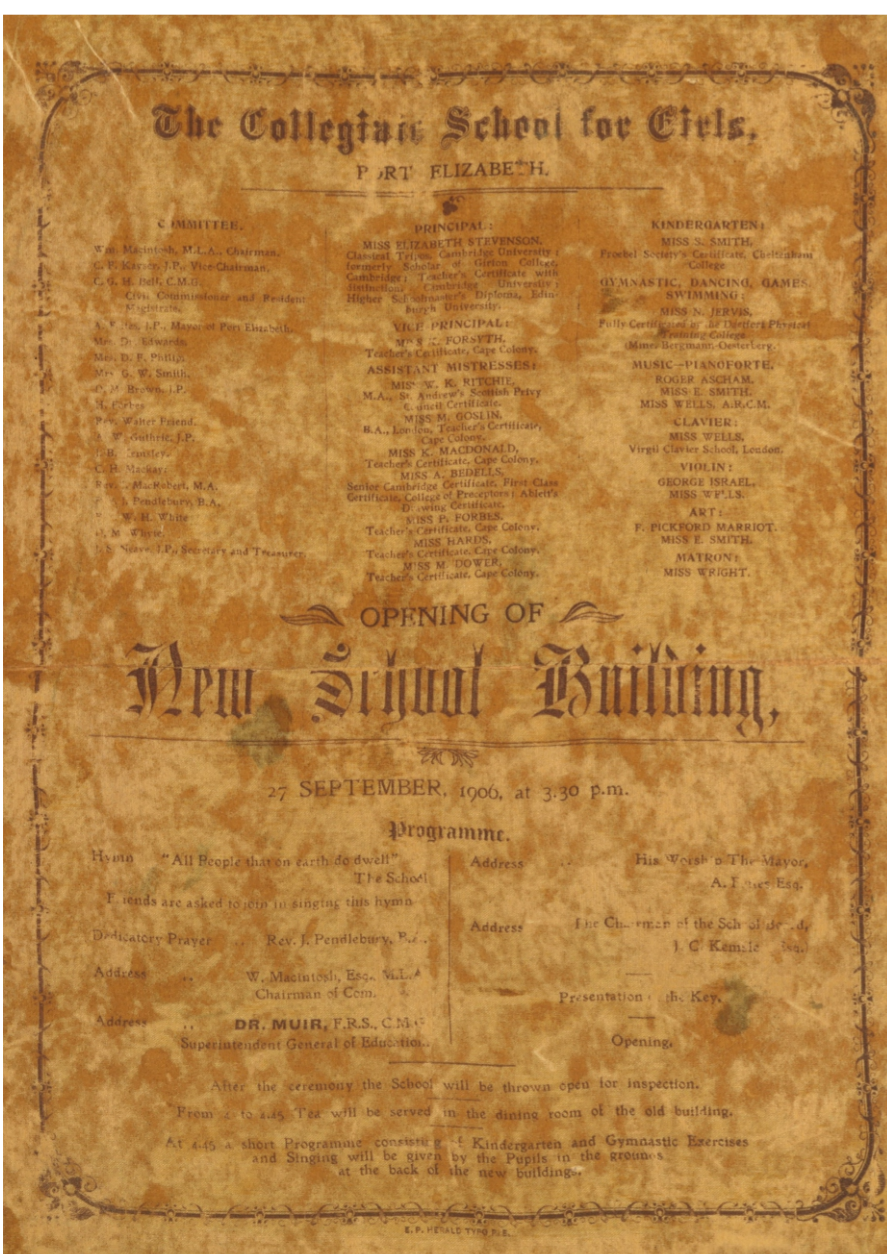 The Collegiate School for Girls,
PORT ELIZABETH.
COMMITTEE.
Wm. Macintosh, M.L.A., Chairman.
C. F. Kayser, J.P., Vice-Chairman.
C. G. H. Bell, C.M.G.
Civil Commissioner and Resident
Magistrate.
A. J.P., Mayor of Port Elizabeth.
Mrs. Dr. Edwards.
Mrs. D. F. Philip.
Mrs. G. W. Smith.
M. Brown, J.P.
H. Forbes
Rev. Walter Friend.
W. Guthrie, J.P.
B.
C. H. Mackay.
Rev. MacRobert, M.A.
Pendlebury, B.A.
W. H. White
M. Whyte.
J.P., Secretary and Treasurer.
PRINCIPAL:
MISS ELIZABETH STEVENSON,
Classical Tripos, Cambridge University;
formerly Scholar of Girton College,
Cambridge; Teacher's Certificate with
distinction Cambridge University;
Higher Schoolmaster's Diploma, Edin-
burgh University.
VICE PRINCIPAL:
MISS FORSYTH,
Teacher's Certificate, Cape Colony.
ASSISTANT MISTRESSES:
MISS W. K. RITCHIE,
M.A., St. Andrew's Scottish Privy
Council Certificate.
MISS M. GOSLIN,
B.A., London, Teacher's Certificate,
Cape Colony.
MISS K. MACDONALD,
Teacher's Certificate, Cape Colony.
MISS A. BEDELLS,
Senior Cambridge Certificate, First Class
Certificate, College of Preceptors; Ablett's
Drawing Certificate.
MISS P. FORBES,
Teacher's Certificate, Cape Colony.
MISS HARDS,
Teacher's Certificate, Cape Colony.
MISS M. DOWER,
Teacher's Certificate, Cape Colony.
KINDERGARTEN:
MISS S. SMITH,
Froebel Society's Certificate, Cheltenham
College
GYMNASTIC, DANCING, GAMES
SWIMMING:
MISS N. JERVIS,
Fully Certificated of the Dartford Physical
Training College
Bergmann-Oesterberg.
MUSIC—PIANOFORTE.
ROGER ASCHAM.
MISS E. SMITH.
MISS WELLS, A.R.C.M.
CLAVIER:
MISS WELLS,
Virgil Clavier School, London.
VIOLIN:
GEORGE ISRAEL,
MISS WELLS.
ART:
F. PICKFORD MARRIOT.
MISS E. SMITH.
MATRON:
MISS WRIGHT.
OPENING OF
New School Building,
27 SEPTEMBER, 1906, at 3.30 p.m.
Programme.
Hymn "All People that on earth do dwell"
The School
Friends are asked to join in singing this hymn
Dedicatory Prayer .. Rev. J. Pendlebury, B.A.
Address .. W. Macintosh, Esq., M.L.A
Chairman of Com.
Address .. DR. MUIR, F.R.S., C.M.G
Superintendent General of Education.
Address .. His Worship The Mayor,
A. Esq.
Address The Chairman of the School Board,
J. C. Esq.
Presentation of the Key.
Opening.
After the ceremony the School will be thrown open for inspection.
From 4 to 4.45 Tea will be served in the dining room of the old building.
At 4.45 a short Programme consisting of Kindergarten and Gymnastic Exercises
and Singing will be given by the Pupils in the grounds
at the back of the new buildings.
E. P. HERALD TYPO P.E.